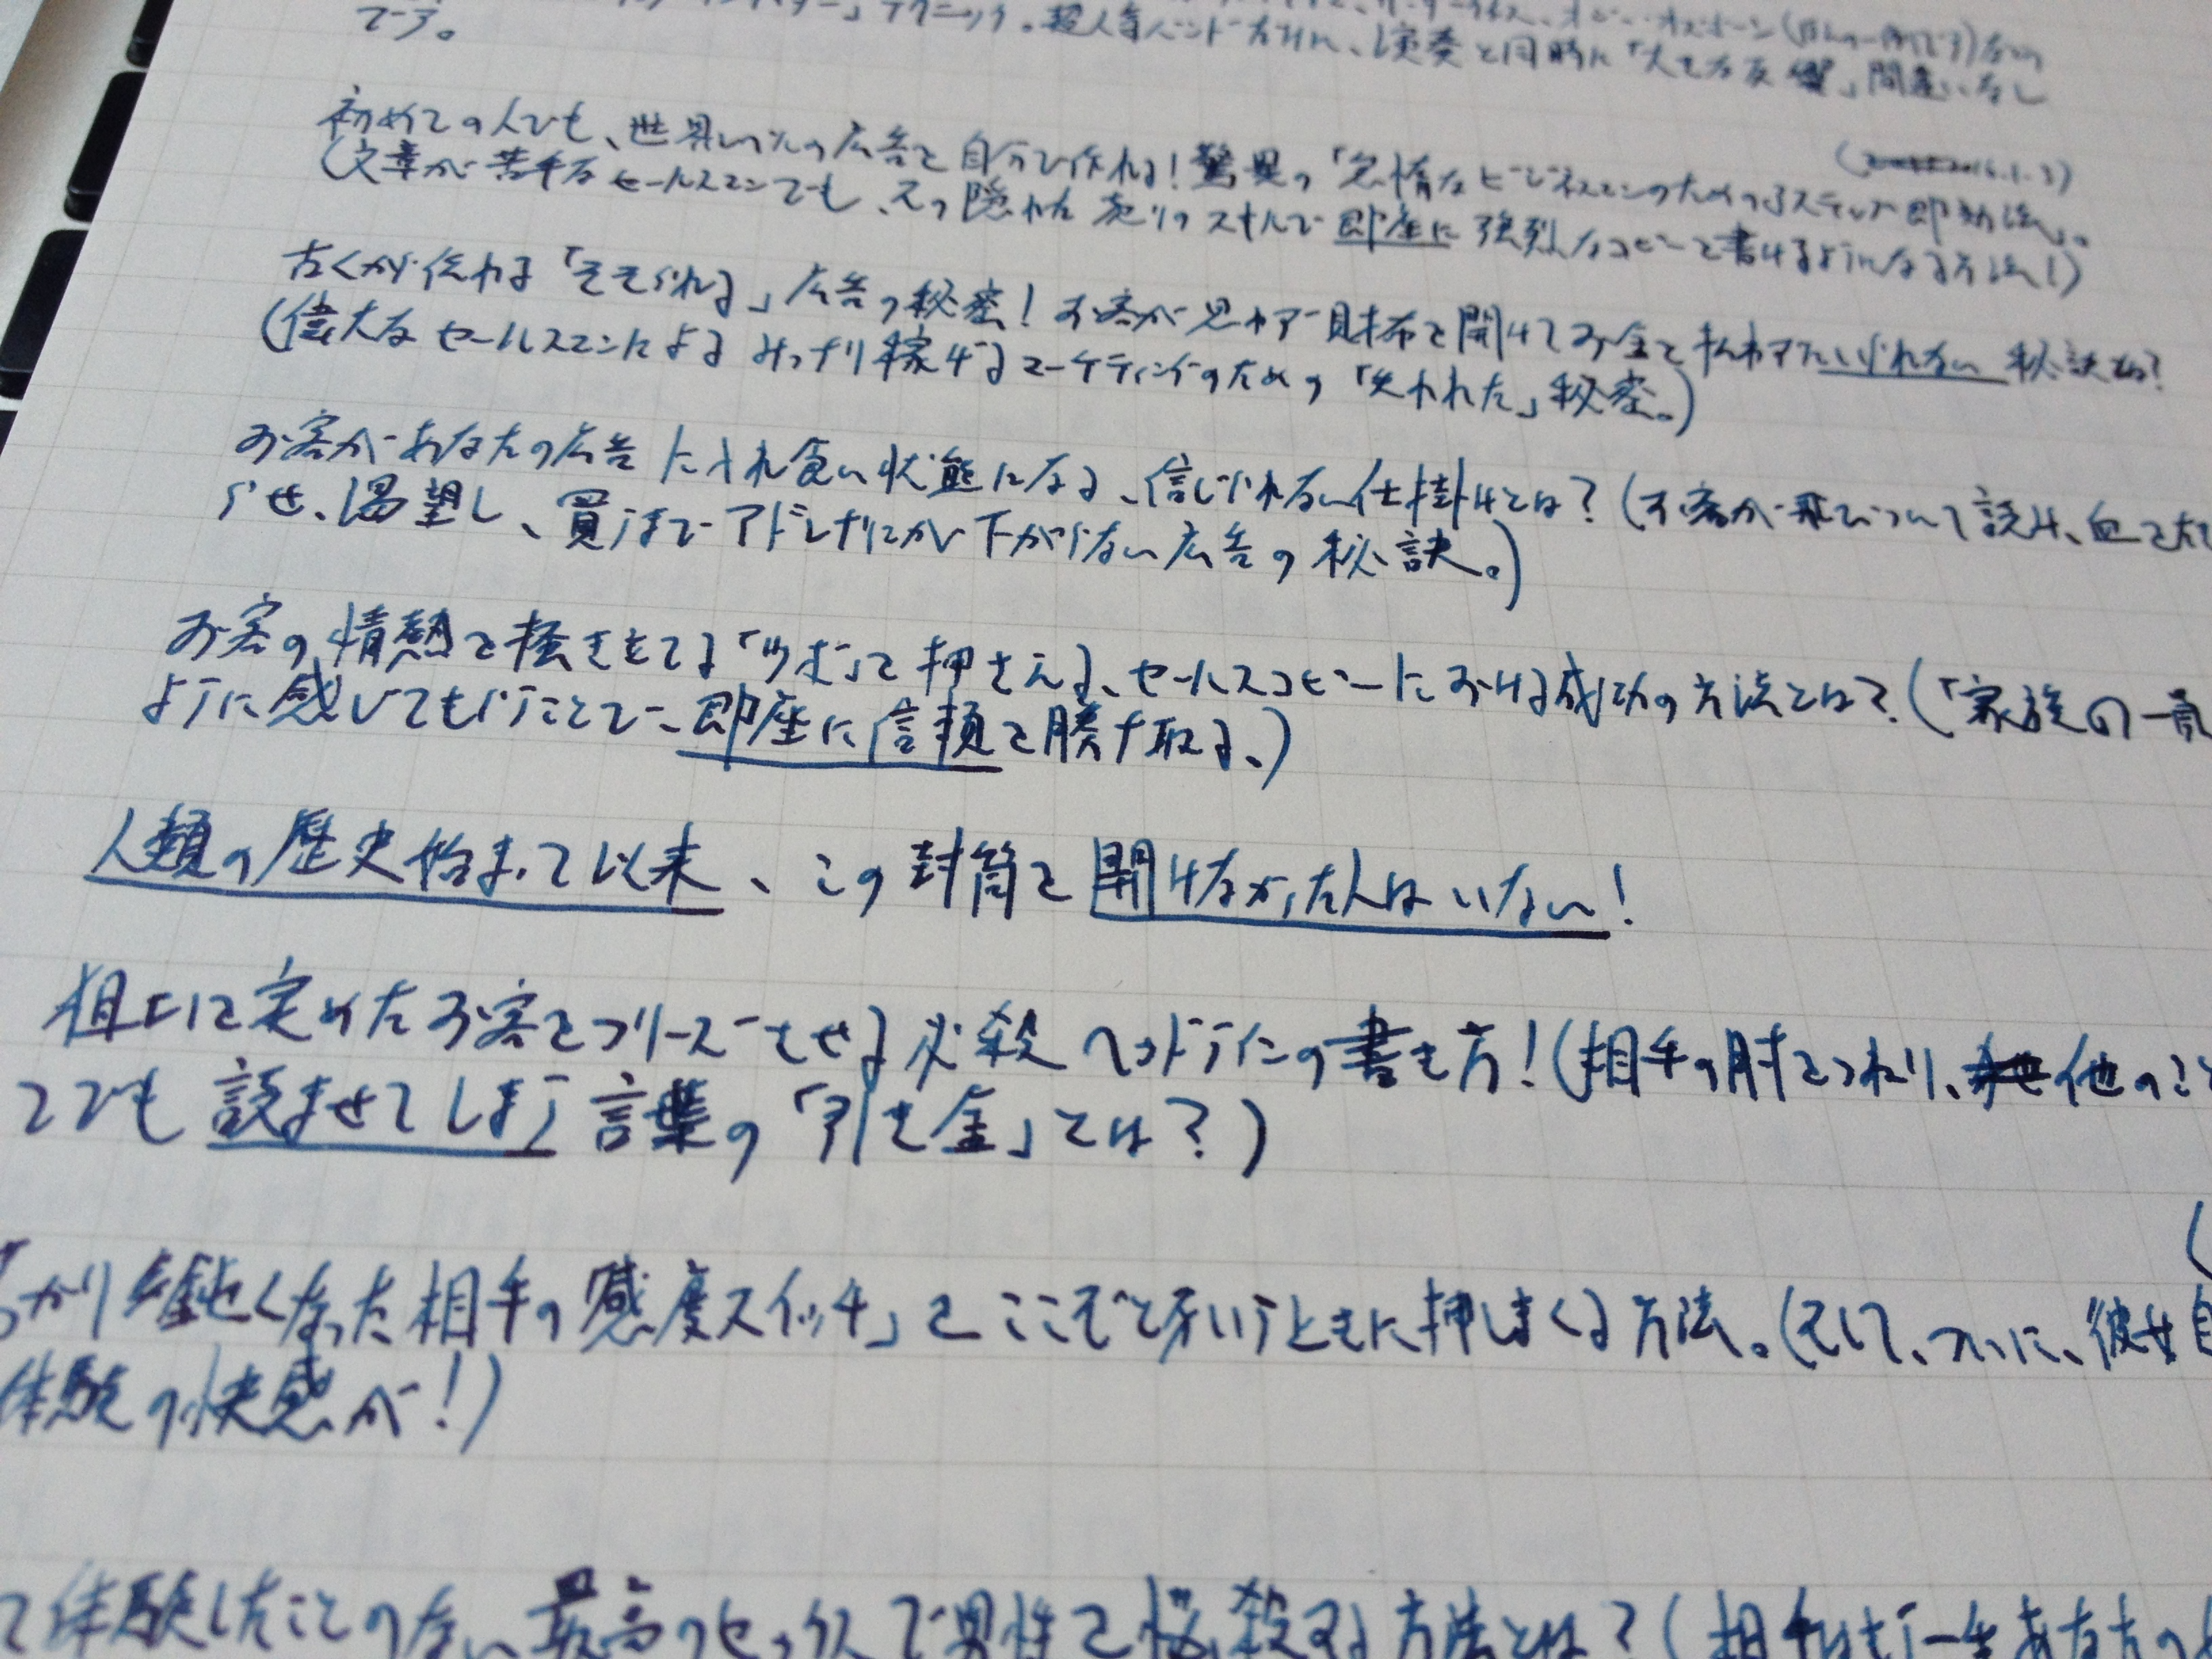 です。テクニック。超人気バンド
演奏と同時に「大きな反響」間違いなし
初めての人でも、世界の広告を自分で作れる！驚異の「怠惰なビジネスマンのための3ステップ即効法」。
(文章が苦手なセールスマンでも、その隠れた売りのスキルで即座に強烈なコピーを書けるようになる方法！)
古くから伝わる「そそられる」広告の秘密！お客が思わず財布を開けてお金を払わずにいられない秘訣とは？
(偉大なセールスマンによるみっちり稼げるマーケティングのための「失われた」秘密。)
お客があなたの広告に入れ食い状態になる、信じられない仕掛けとは？(お客が飛びついて読み、血をた
らせ、渇望し、買うまでアドレナリンが下がらない広告の秘訣。)
お客の情熱を掻き立てる「ツボ」を押さえる、セールスコピーにおける成功の方法とは？(「家族の一員
ように感じてもらうことで、即座に信頼を勝ち取る。)
人類の歴史始まって以来、この封筒を開けなかった人はいない！
狙いを定めたお客をフリーズさせる必殺ヘッドラインの書き方！(相手の肘をつねり、他のこと
てでも読ませてしまう言葉の「引き金」とは？)
っかり鈍くなった相手の「感度スイッチ」をここぞというときに押しまくる方法。(そして、ついに、彼女自
体験の快感が！)
て体験したことのない最高のセックスで男性を悩殺する方法とは？(相手はもう一生あなたの